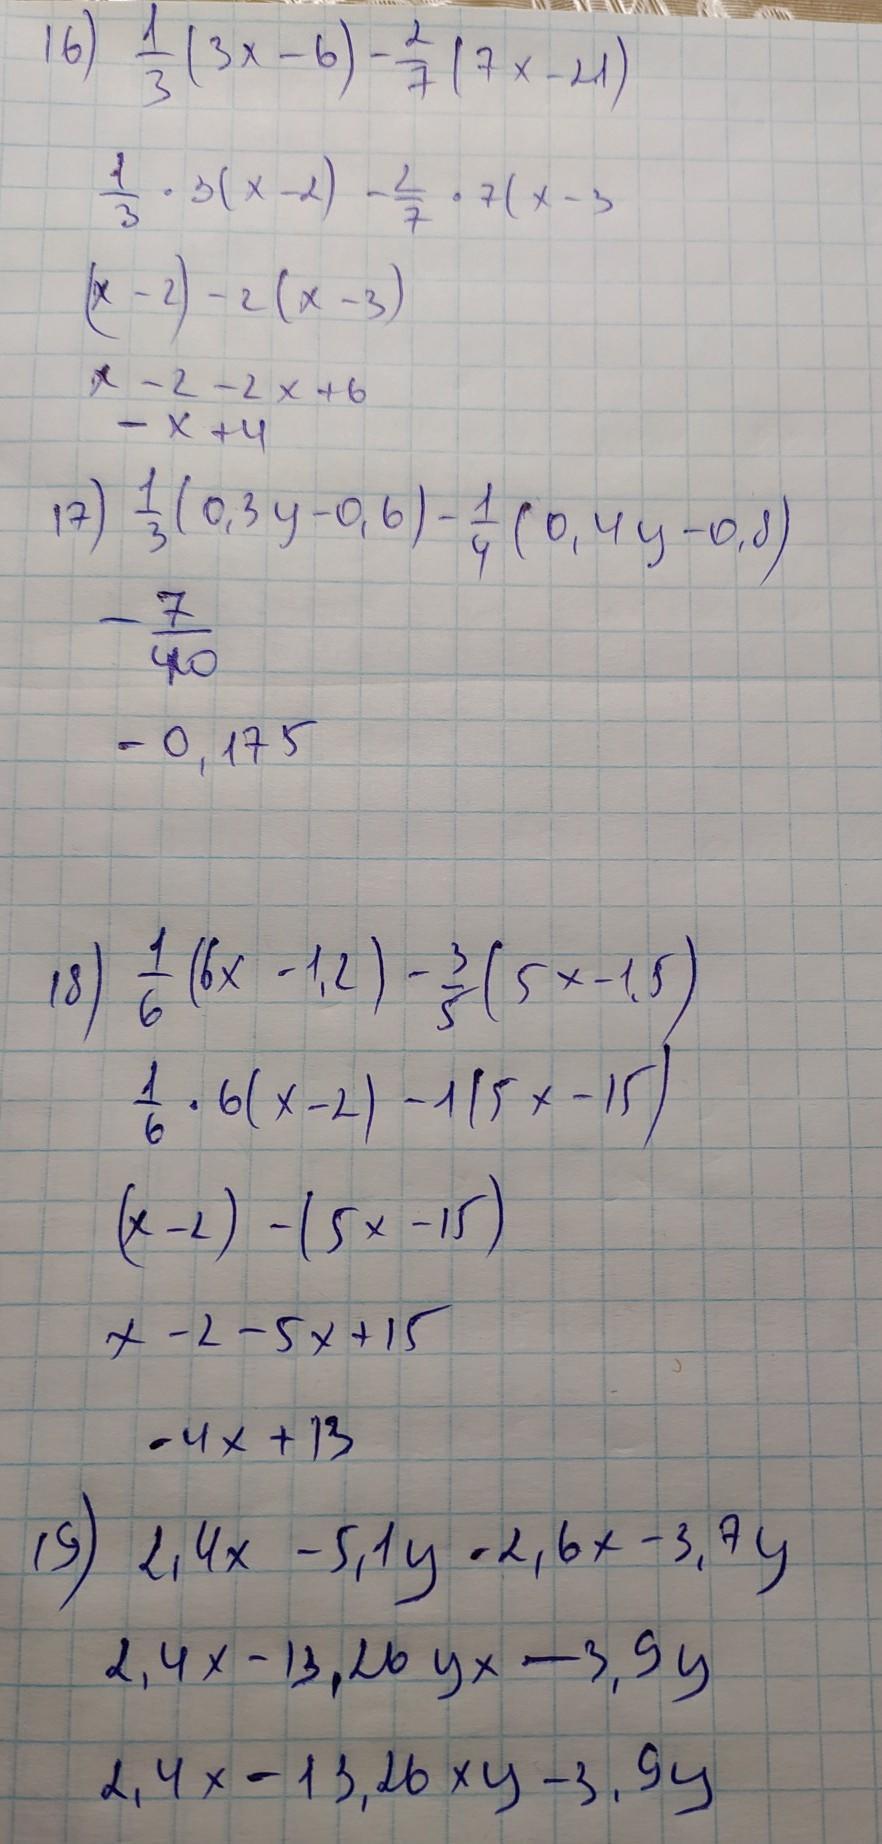 16) 1/3 (3x - 6) - 2/7 (7x - 21)
1/3 · 3(x - 2) - 2/7 · 7(x - 3
(x - 2) - 2(x - 3)
x - 2 - 2x + 6
- x + 4
17) 1/3 (0,3y - 0,6) - 1/4 (0,4y - 0,8)
- 7/40
- 0,175
18) 1/6 (6x - 1,2) - 3/5 (5x - 1,5)
1/6 · 6(x - 2) - 1(5x - 15)
(x - 2) - (5x - 15)
x - 2 - 5x + 15
- 4x + 13
19) 2,4x - 5,1y · 2,6x - 3,7y
2,4x - 13,26yx - 3,9y
2,4x - 13,26xy - 3,9y